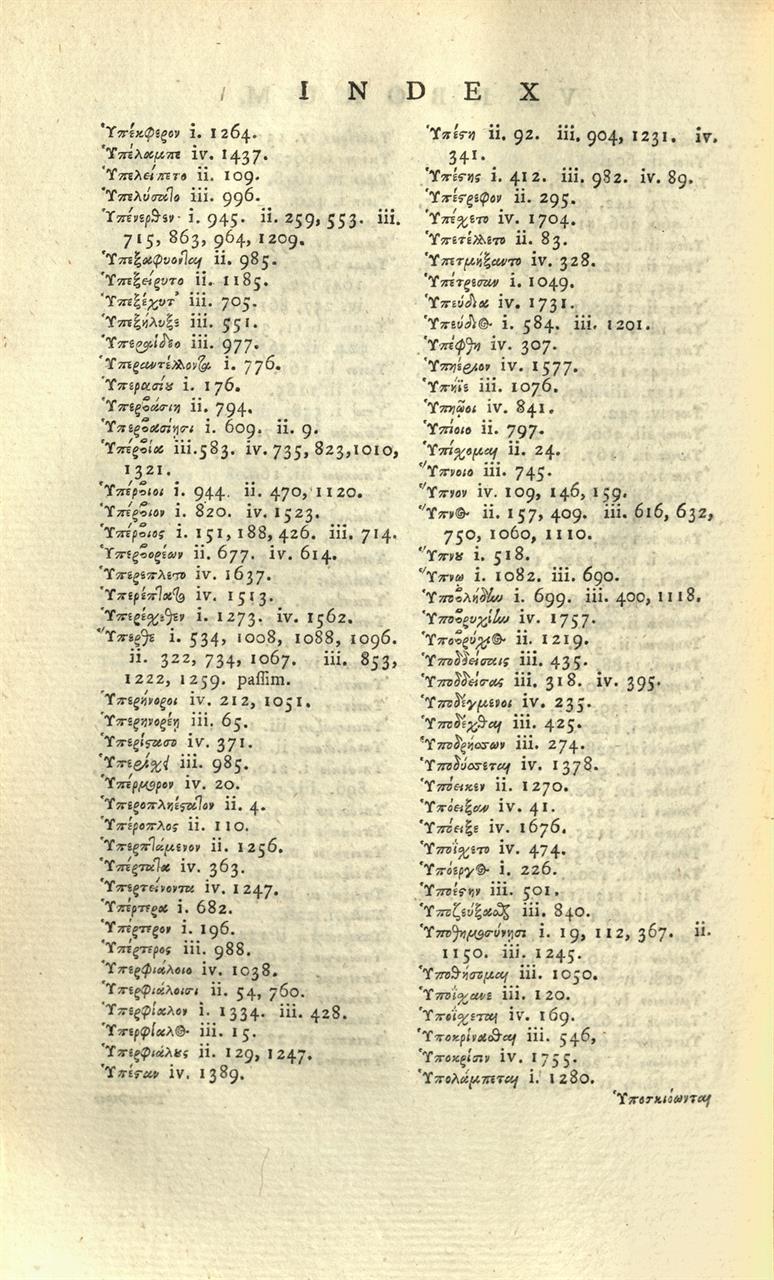 INDEX
Ὑπέκφερον i. 1264.
Ὑπέλαμπε iv. 1437.
Ὑπελείπετο ii. 109.
Ὑπελύσατο iii. 996.
Ὑπένερθεν i. 945. ii. 259, 553. iii.
715, 863, 964, 1209.
Ὑπεξαφύονται ii. 985.
Ὑπεξείρυτο ii. 1185.
Ὑπεξέχυτ' iii. 705.
Ὑπεξήλυξε iii. 551.
Ὑπεραίδεο iii. 977.
Ὑπεραντέλλοντα i. 776.
Ὑπερασίου i. 176.
Ὑπερβασίη ii. 794.
Ὑπερβασίησι i. 609. ii. 9.
Ὑπέρβια iii. 583. iv. 735, 823, 1010,
1321.
Ὑπέρβιοι i. 944. ii. 470, 1120.
Ὑπέρβιον i. 820. iv. 1523.
Ὑπέρβιος i. 151, 188, 426. iii. 714.
Ὑπερβορέων ii. 677. iv. 614.
Ὑπερεπλετο iv. 1637.
Ὑπερέπτατο iv. 1513.
Ὑπερέχεθεν i. 1273. iv. 1562.
Ὕπερθε i. 534, 1008, 1088, 1096.
ii. 322, 734, 1067. iii. 853,
1222, 1259. passim.
Ὑπερήνοροι iv. 212, 1051.
Ὑπερηνορέη iii. 65.
Ὑπερίστασο iv. 371.
iii. 985.
Ὑπέρμορον iv. 20.
Ὑπεροπληέστατον ii. 4.
Ὑπέροπλος ii. 110.
Ὑπερπτάμενον ii. 1256.
Ὑπέρτατα iv. 363.
Ὑπερτείνοντα iv. 1247.
Ὑπέρτερα i. 682.
Ὑπέρτερον i. 196.
Ὑπέρτερος iii. 988.
Ὑπερφιάλοιο iv. 1038.
Ὑπερφιάλοισι ii. 54, 760.
Ὑπερφίαλον i. 1334. iii. 428.
Ὑπερφίαλος iii. 15.
Ὑπερφιάλους ii. 129, 1247.
Ὑπέσταν iv. 1389.
Ὑπέστη ii. 92. iii. 904, 1231. iv.
341.
Ὑπέστης i. 412. iii. 982. iv. 89.
Ὑπέστρεφον ii. 295.
Ὑπέσχετο iv. 1704.
Ὑπετέλλετο ii. 83.
Ὑπετμήξαντο iv. 328.
Ὑπέτρεσαν i. 1049.
Ὑπεύδια iv. 1731.
Ὑπεύδιος i. 584. iii. 1201.
Ὑπέφθη iv. 307.
Ὑπηέριον iv. 1577.
Ὑπήϊε iii. 1076.
Ὑπηῷοι iv. 841.
Ὑπίοιο ii. 797.
Ὑπίσχομαι ii. 24.
Ὕπνοιο iii. 745.
Ὕπνον iv. 109, 146, 159.
Ὕπνος ii. 157, 409. iii. 616, 632,
750, 1060, 1110.
Ὕπνου i. 518.
Ὕπνῳ i. 1082. iii. 690.
Ὑποβλήδην i. 699. iii. 400, 1118.
Ὑποβρυχίην iv. 1757.
Ὑποβρύχιος ii. 1219.
Ὑποδδείσαις iii. 435.
Ὑποδδείσας iii. 318. iv. 395.
Ὑποδέγμενοι iv. 235.
Ὑποδέχθαι iii. 425.
Ὑποδρήσσων iii. 274.
Ὑποδύσεται iv. 1378.
Ὑπόεικεν ii. 1270.
Ὑπόειξαν iv. 41.
Ὑπόειξε iv. 1676.
Ὑποΐσχετο iv. 474.
Ὑπόεργος i. 226.
Ὑποέστην iii. 501.
Ὑποζεύξασθαι iii. 840.
Ὑποθημοσύνησι i. 19, 112, 367. ii.
1150. iii. 1245.
Ὑποθήσομαι iii. 1050.
Ὑποΐσχανε iii. 120.
Ὑποΐσχεται iv. 169.
Ὑποκρίνασθαι iii. 546,
Ὑποκρίσιν iv. 1755.
Ὑπολάμπεται i. 1280.
Ὑποσκιόωνται